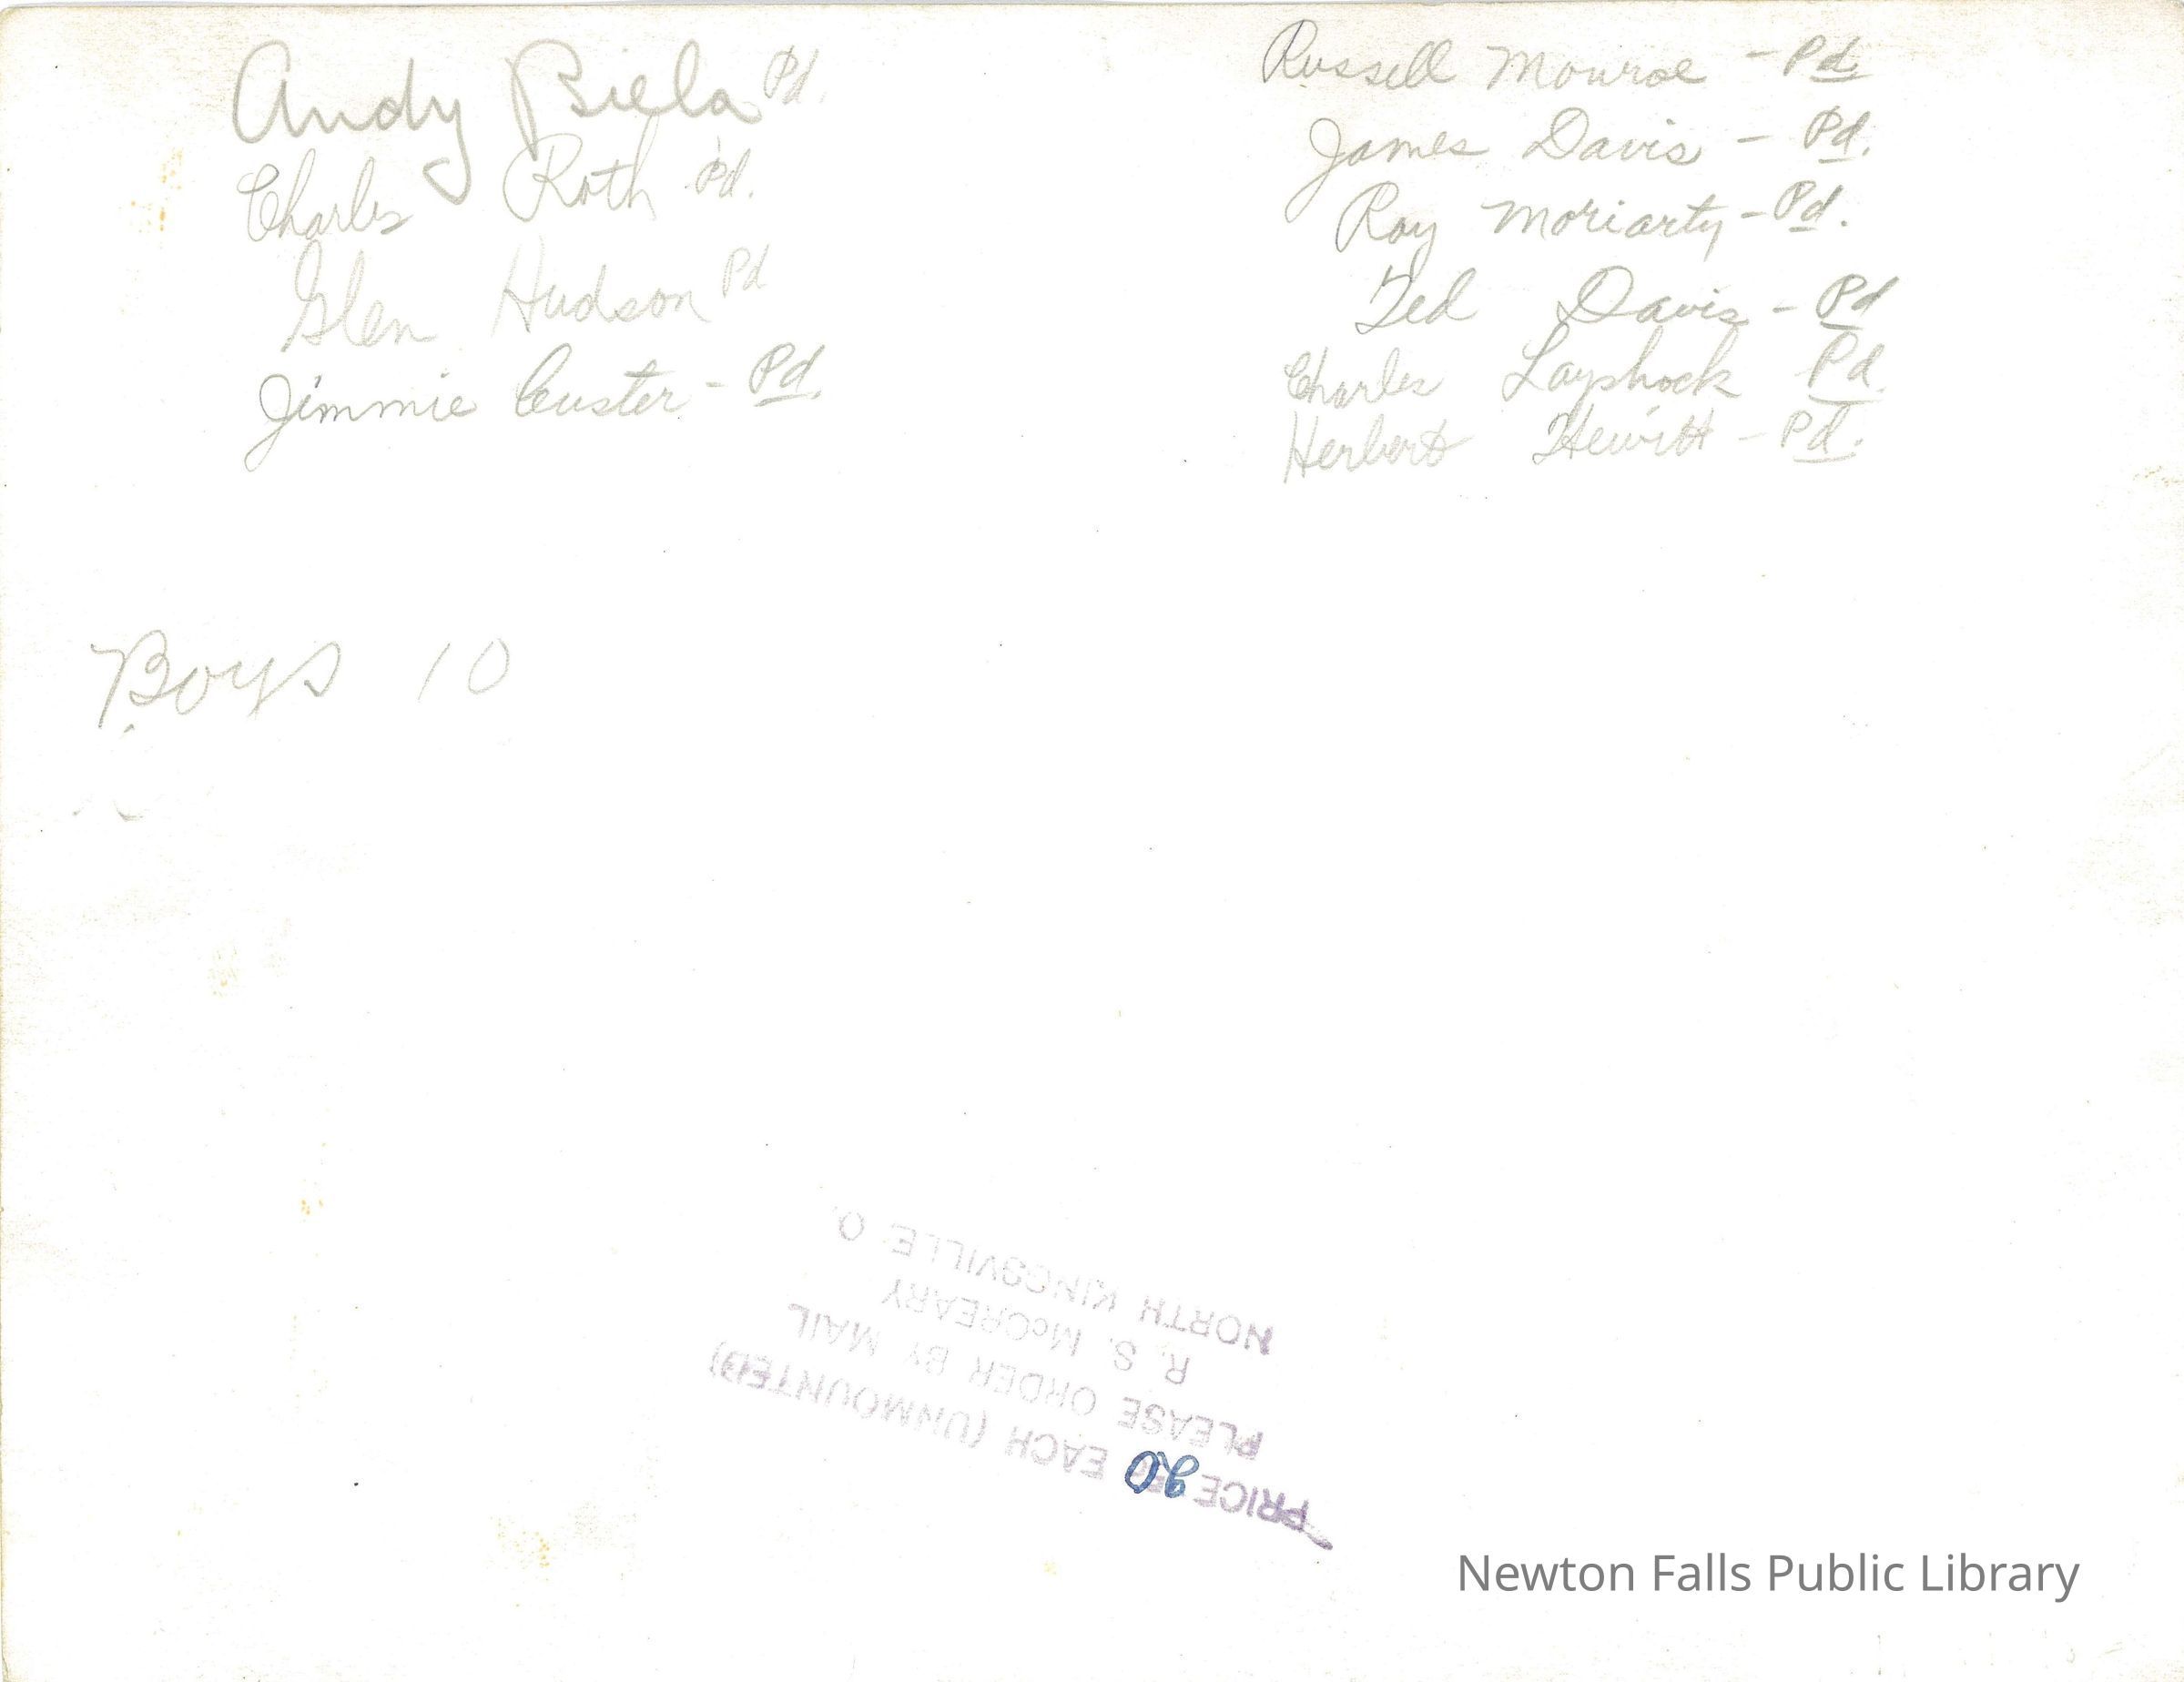 Andy Biela Pd.
Charles Roth Pd.
Glen Hudson Pd
Jimmie Custer - Pd.
Russell Monroe - Pd.
James Davis - Pd.
Ray Moriarty - Pd.
Ted Davis - Pd
Charles Layshock Pd.
Herbert Hewitt - Pd.
Boys 10
PRICE 20 EACH (UNMOUNTED)
PLEASE ORDER BY MAIL
R. S. McCREARY
NORTH KINGSVILLE O.
Newton Falls Public Library